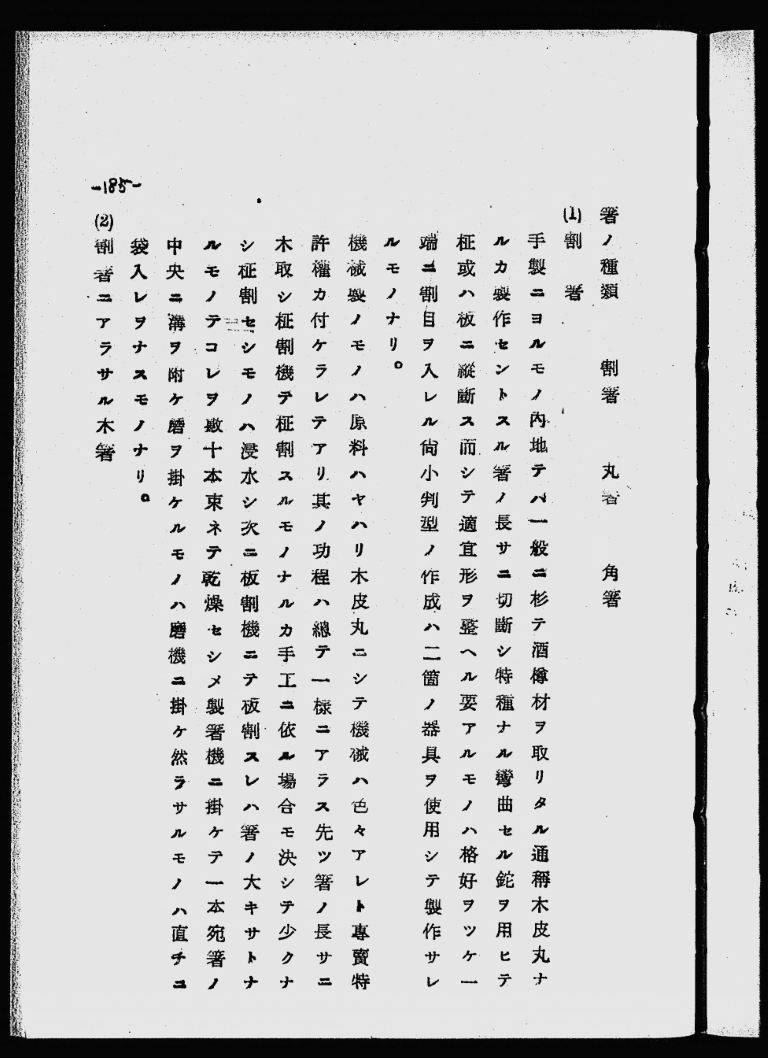 箸ノ種類　割箸　丸箸　角箸
(1)割箸
手製ニヨルモノ內地テハ一般ニ杉テ酒樽材ヲ取リタル通稱木皮丸ナ
ルカ製作セントスル箸ノ長サニ切斷シ特種ナル彎曲セル鉈ヲ用ヒテ
柾或ハ板ニ縱斷ス而シテ適宜形ヲ整ヘル要アルモノハ格好ヲツケ一
端ニ割目ヲ入レル尙小判型ノ作成ハ二箇ノ器具ヲ使用シテ製作サレ
ルモノナリ。
機械製ノモノハ原料ハヤハリ木皮丸ニシテ機械ハ色々アレト專賣特
許權カ付ケラレテアリ其ノ功程ハ總テ一樣ニアラス先ツ箸ノ長サニ
木取シ柾割機テ柾割スルモノナルカ手工ニ依ル場合モ決シテ少クナ
シ柾割セシモノハ浸水シ次ニ板割機ニテ板割スレハ箸ノ大キサトナ
ルモノテコレヲ數十本束ネテ乾燥セシメ製箸機ニ掛ケテ一本宛箸ノ
中央ニ溝ヲ附ケ磨ヲ掛ケルモノハ磨機ニ掛ケ然ラサルモノハ直チニ
袋入レヲナスモノナリ。
(2)割箸ニアラサル木箸
-185-